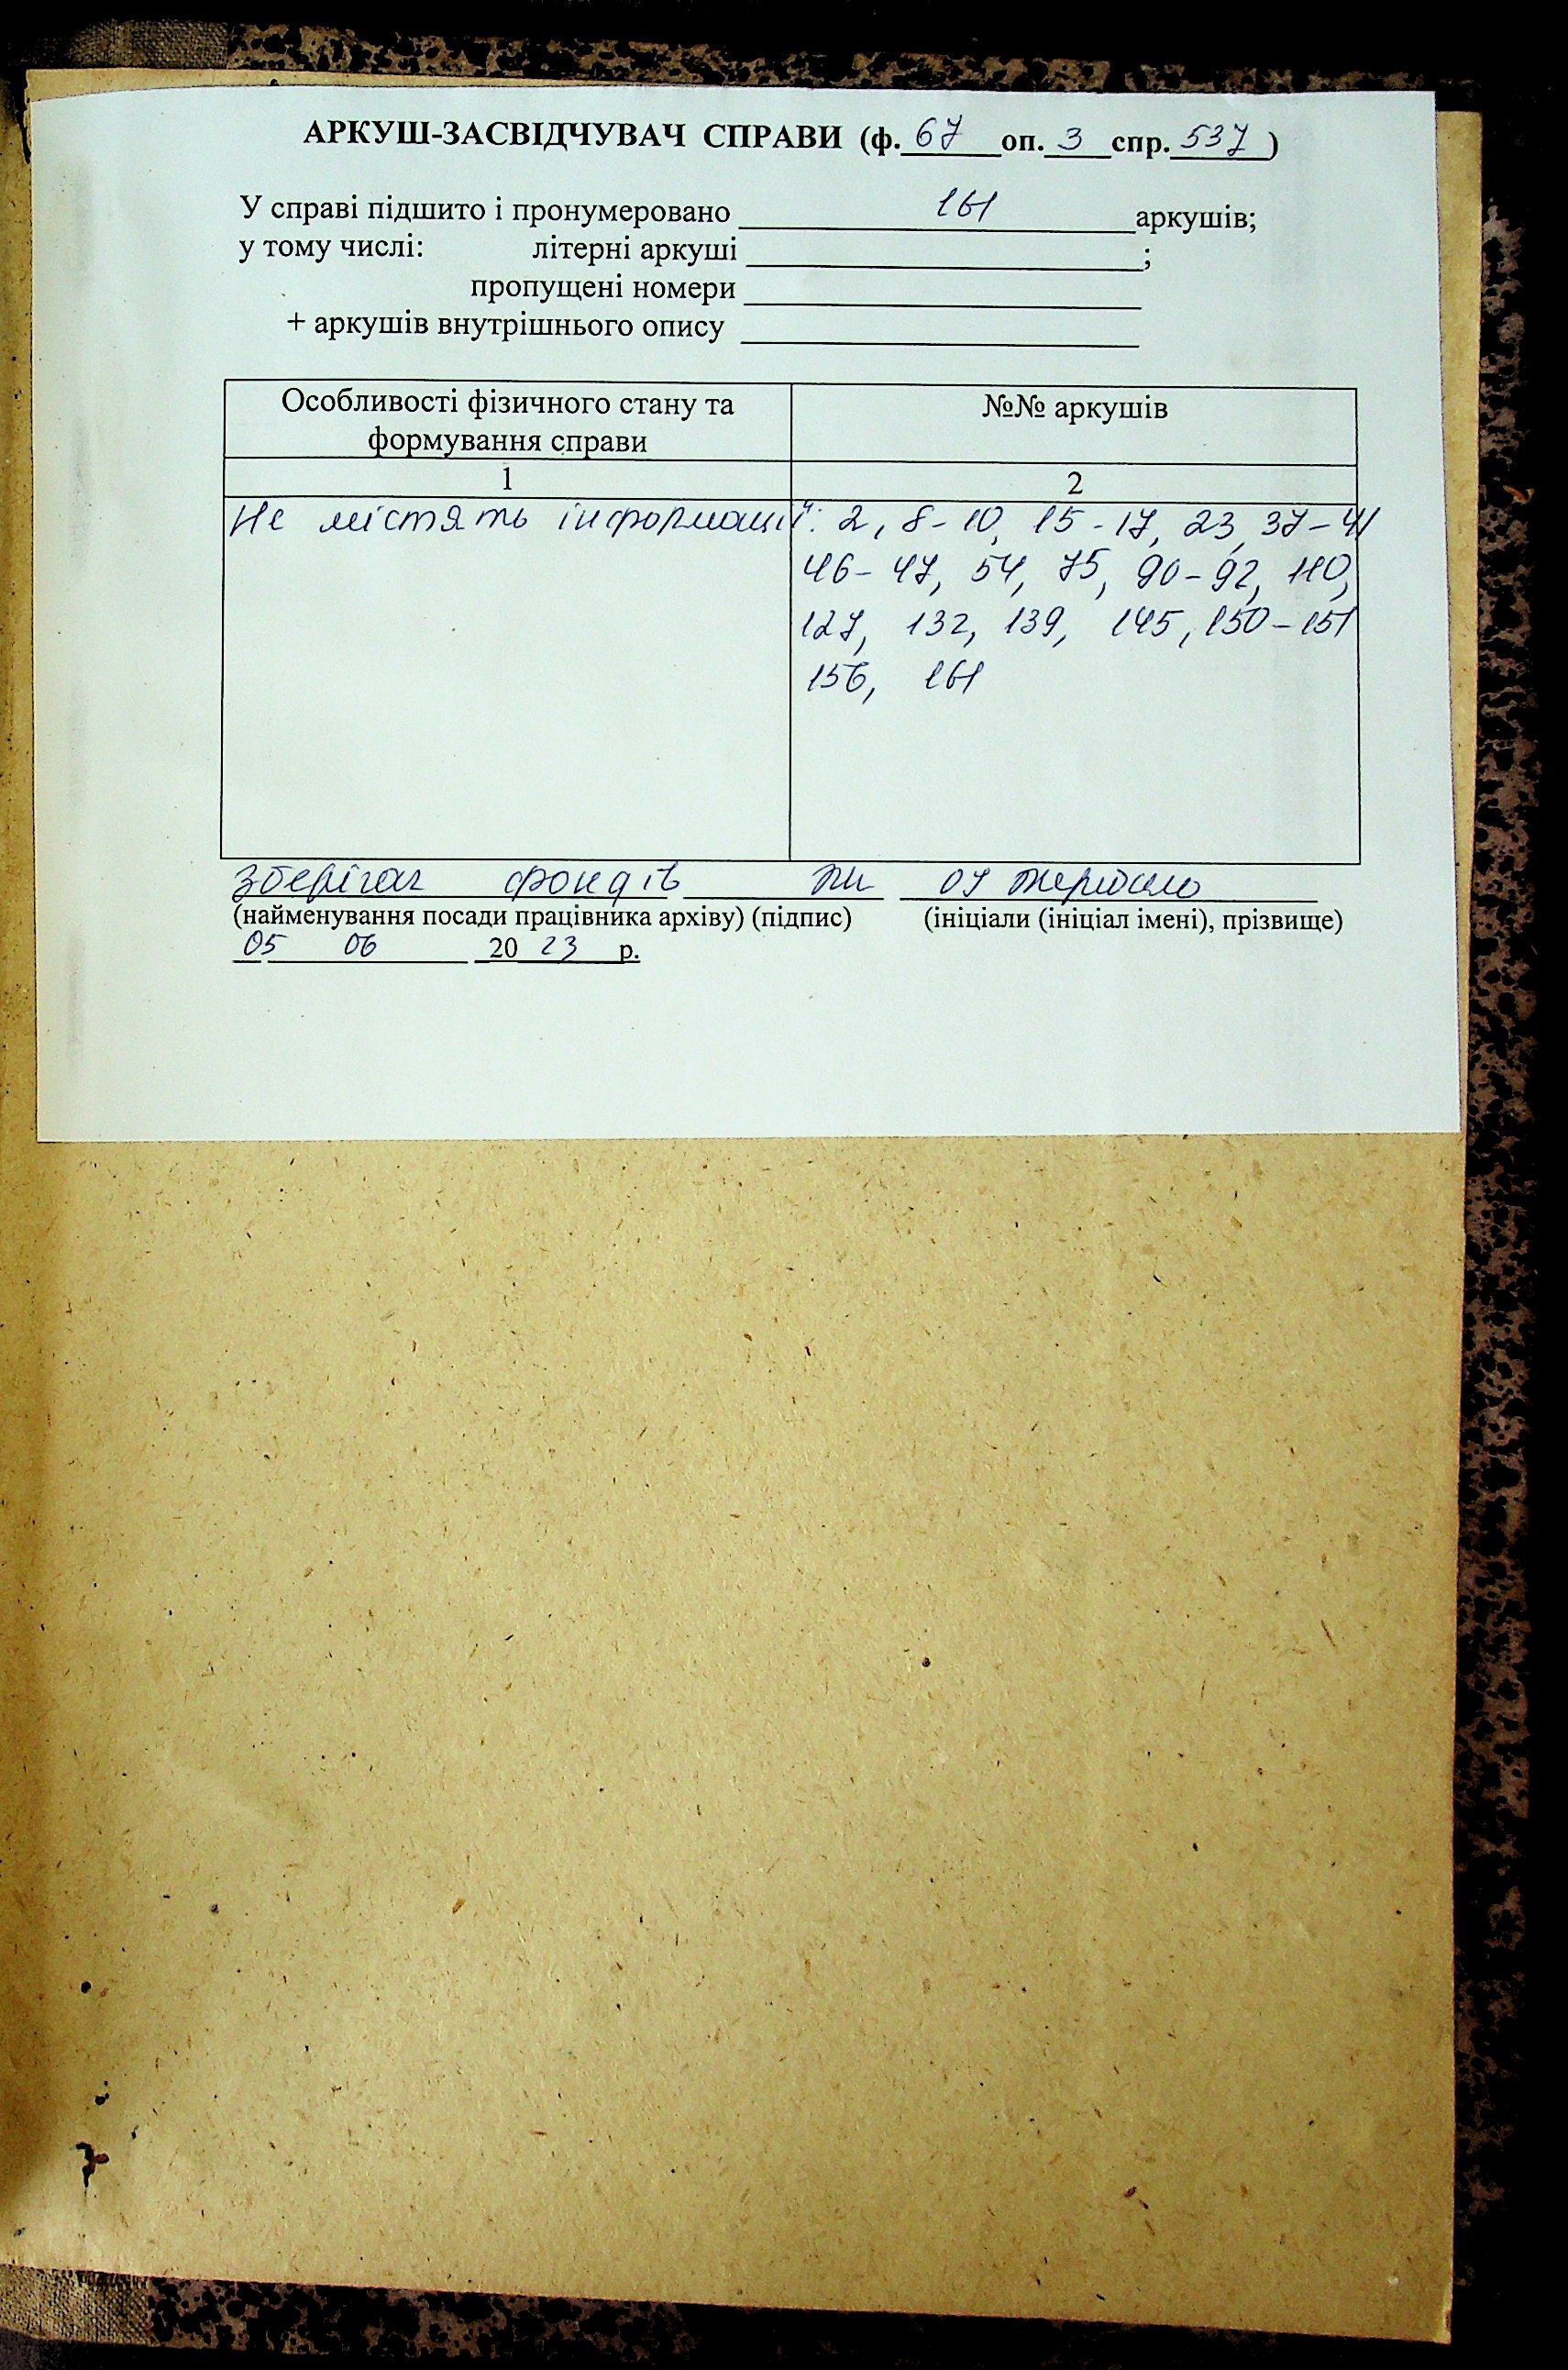 АРКУШ-ЗАСВІДЧУВАЧ СПРАВИ (ф. 67 оп. 3 спр. 537)
У справі підшито і пронумеровано 161 аркушів;
у тому числі: літерні аркуші ;
пропущені номери
+ аркушів внутрішнього опису
Особливості фізичного стану та формування справи
№№ аркушів
1 2
Не містять інформації: 2, 8-10, 15-17, 23, 37-41
46-47, 54, 75, 90-92, 110,
127, 132, 139, 145, 150-151
156, 161
Зберігач фондів
(найменування посади працівника архіву) (підпис) (ініціали (ініціал імені), прізвище)
05 06 2023 р.